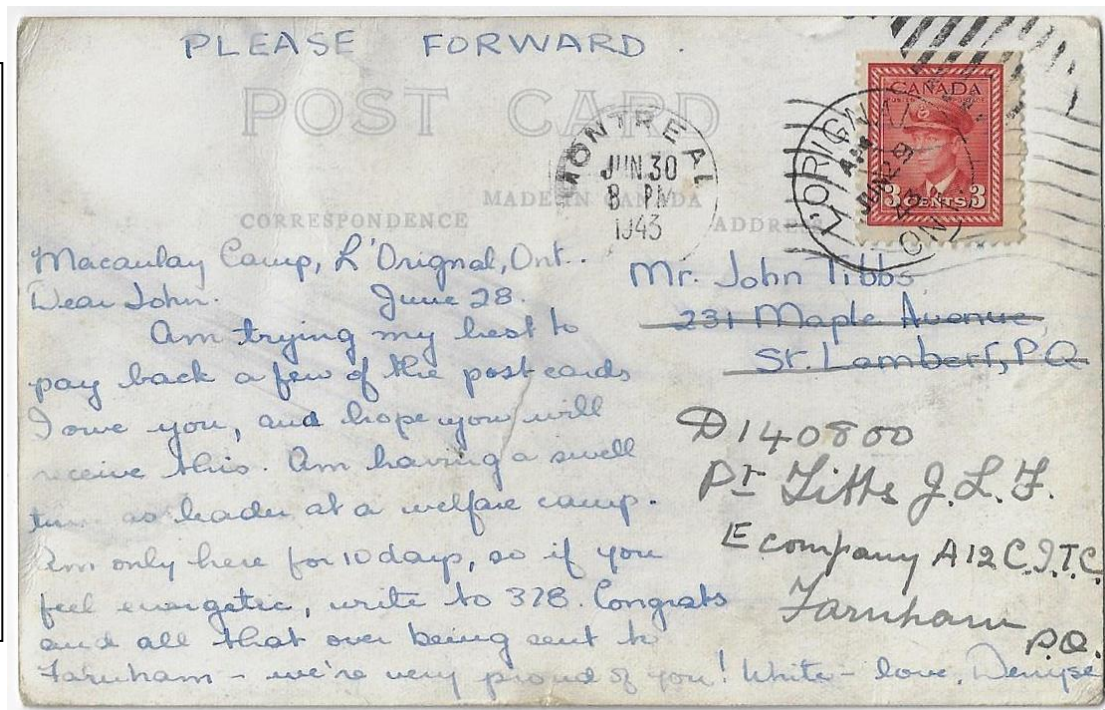 PLEASE FORWARD.
POST CARD
MADE IN CANADA
CORRESPONDENCE
ADDRESS
MONTREAL
JUN 30
8 PM
1943
L'ORIGNAL
JUN 29
43
ONT.
CANADA
POSTES POSTAGE
3 CENTS 3
Macaulay Camp, L'Orignal, Ont.
Dear John. June 28.
Am trying my best to
pay back a few of the postcards
I owe you, and hope you will
receive this. Am having a swell
as leader at a welfare camp.
Am only here for 10 days, so if you
feel energetic, write to 378. Congrats
and all that over being sent to
Farnham - we're very proud of you! Write - love, Denyse
Mr. John Tibbs
231 Maple Avenue,
St. Lambert, P.Q.
D140800
Pr Tibbs J.L.F.
E company A12 C.I.T.C.
Farnham
P.Q.